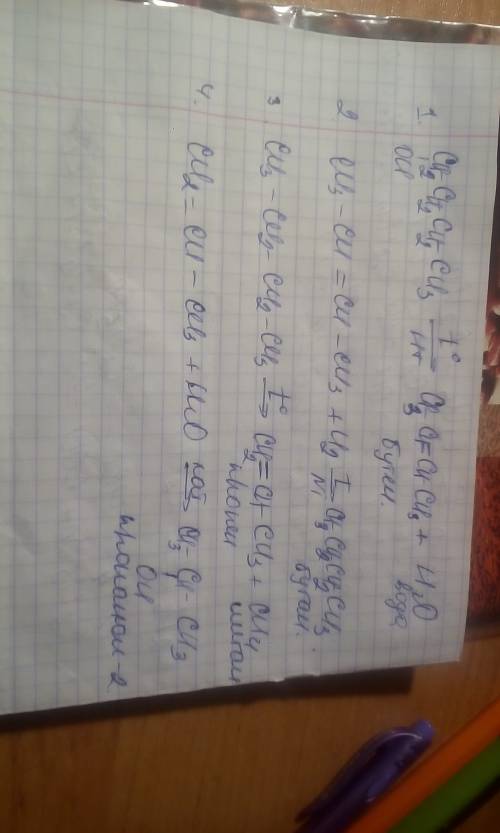 1. CH2CH2CH2CH3 t°→ CH3CH=CHCH3 + H2O
OH бутен. вода
2. CH3 – CH = CH – CH3 + H2 t→ CH3CH2CH2CH3.
Ni бутан.
3. CH3 – CH2 – CH2 – CH3 t°→ CH2=CH–CH3 + CH4
пропен метан
4. CH2 = CH – CH3 + HHO кат→ CH3–CH–CH3
OH
пропанол-2